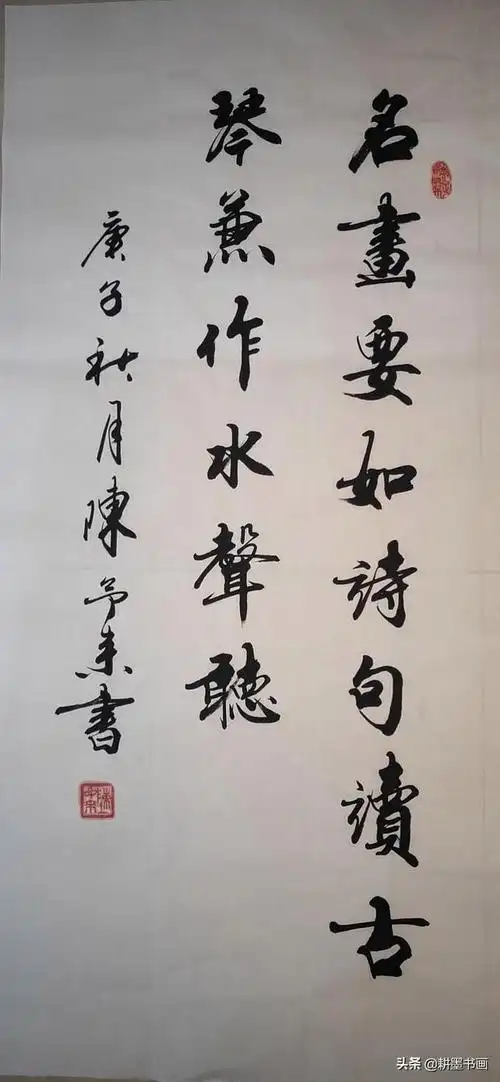 名畫要如詩句讀古
琴兼作水聲聽
庚子秋月陳予未書
头条 @耕墨书画